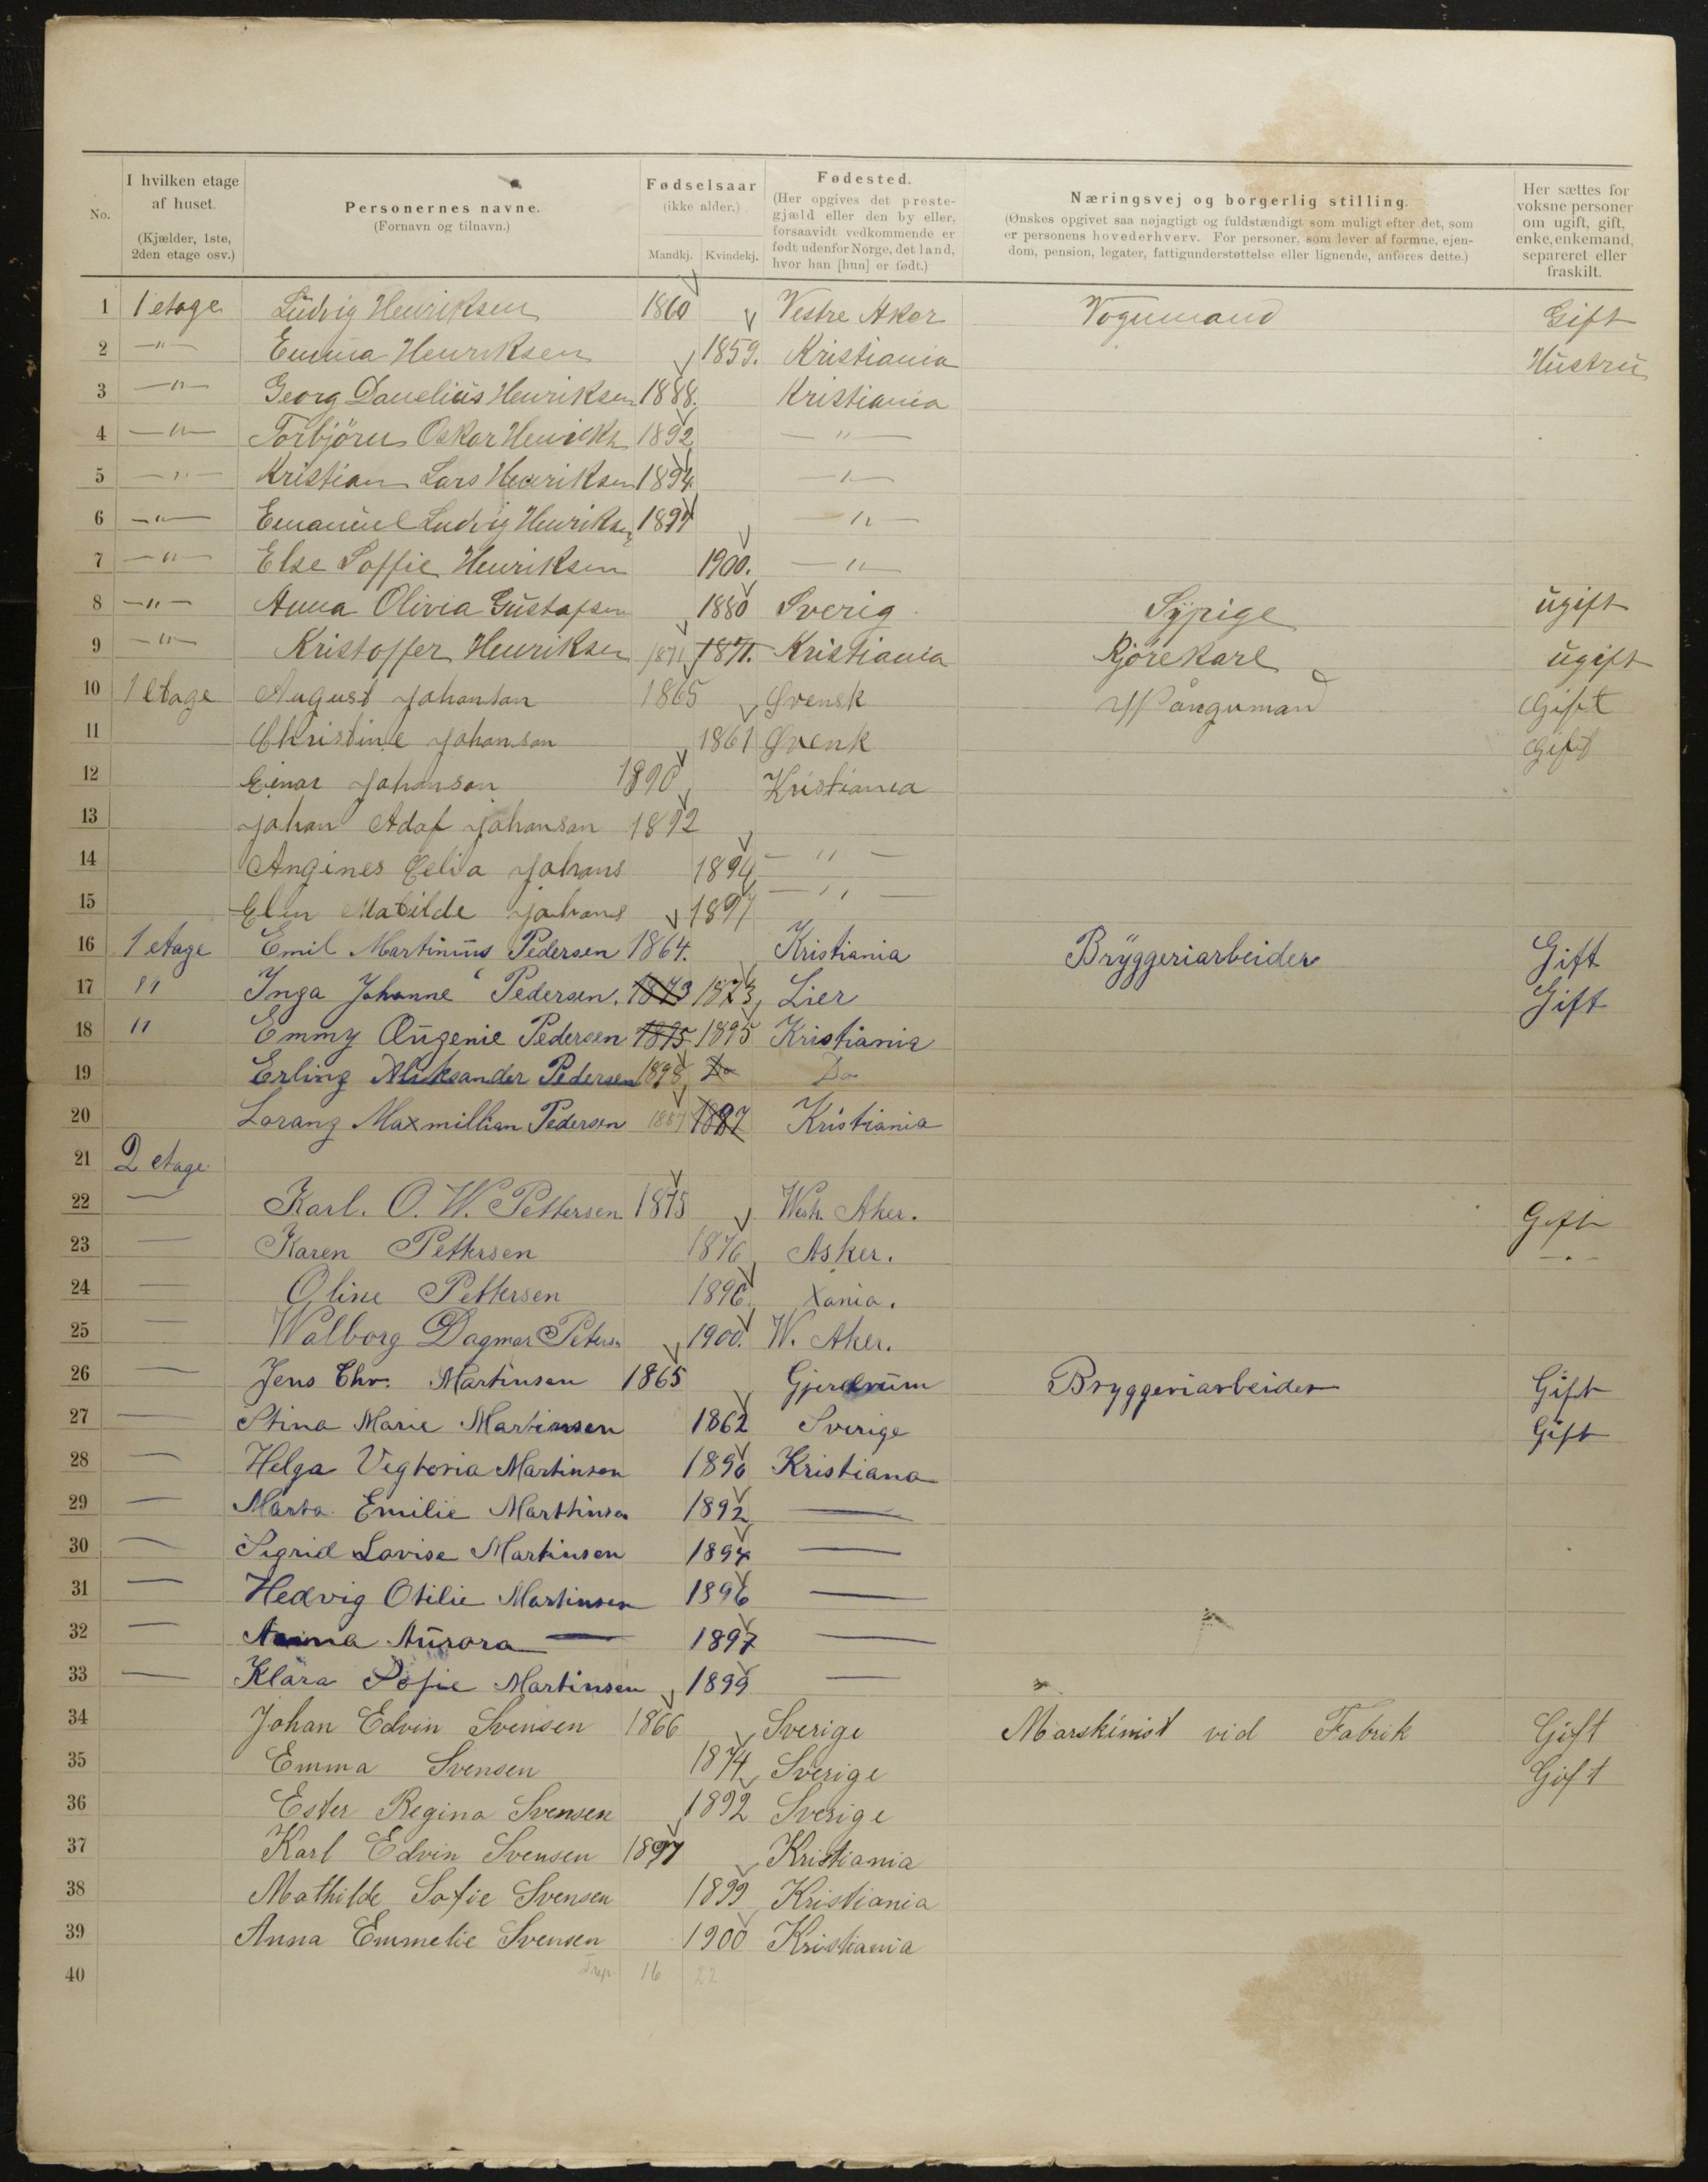 No.
I hvilken etage
af huset.
(Kjælder, 1ste,
2den etage osv.)
Personernes navne.
(Fornavn og tilnavn.)
Fødselsaar
(ikke alder.)
Mandkj. Kvindekj.
Fødested.
(Her opgives det preste-
gjæld eller den by eller,
forsaavidt vedkommende er
født udenfor Norge, det land,
hvor han [hun] er født.)
Næringsvej og borgerlig stilling.
(Ønskes opgivet saa nøjagtigt og fuldstændigt som muligt efter det, som
er personens hovederhverv. For personer, som lever af formue, ejen-
dom, pension, legater, fattigunderstøttelse eller lignende, anføres dette.)
Her sættes for
voksne personer
om ugift, gift,
enke, enkemand,
separeret eller
fraskilt.
1 1 etage Ludvig Henriksen 1860 Vestre Aker Vognmand Gift
2 —"— Emma Henriksen 1859. Kristiania Hustru
3 —"— Georg Danelius Henriksen 1888. Kristiania
4 —"— Torbjörn Oskar Henriks 1892 —"—
5 —"— Kristian Lars Henriksen 1894 —"—
6 —"— Emanuel Ludvig Henriksen 1897 —"—
7 —"— Else Soffie Henriksen 1900. —"—
8 —"— Anna Olivia Gustafsen 1880 Sverig Sypige ugift
9 —"— Kristoffer Henriksen 1871 1871. Kristiania Kjörekarl ugift
10 1 Etage August Johansan 1865 Svensk Vångnman Gift
11 Christine Johanson 1861 Svenk Gift
12 Einar Johanson 1890 Kristiania
13 Johan Adof Johanson 1892
14 Angines Celia Johans 1894 — " —
15 Elen Matilde Johans 1897 — " —
16 1 etage Emil Martinius Pedersen 1864. Kristiania Bryggeriarbeider Gift
17 " Inga Johanne Pedersen. 1873 1873 Lier Gift
18 " Emmy Augenie Pedersen 1895 1895 Kristiania
19 Erling Aleksander Pedersen 1898 Do Do
20 Lorang Maxmillian Pedersen 1887 1887 Kristiania
21 2 etage
22 — Karl. O. W. Pettersen 1875 Westr. Aker. Gift
23 — Karen Pettersen 1876 Asker. — . —
24 — Oline Pettersen 1896. Xania.
25 — Walborg Dagmar Peters 1900. W. Aker.
26 — Jens Chr. Martinsen 1865 Gjerdrum Bryggeriarbeider Gift
27 — Stina Marie Martinsen 1862 Sverige Gift
28 — Helga Vigtoria Martinsen 1890 Kristiana
29 — Marta Emilie Marttinsen 1892 —
30 — Sigrid Lovise Martinsen 1894 —
31 — Hedvig Otilie Martinsen 1896 —
32 — Anna Aurora — 1897 —
33 — Klara Sofie Martinsen 1899 —
34 Johan Edvin Svensen 1866 Sverige Marskinist vid Fabrik Gift
35 Emma Svensen 1874 Sverige Gift
36 Ester Regina Svensen 1892 Sverige
37 Karl Edvin Svensen 1897 Kristiania
38 Mathilde Sofie Svensen 1899 Kristiania
39 Anna Emmelie Svensen 1900 Kristiania
40 16 22